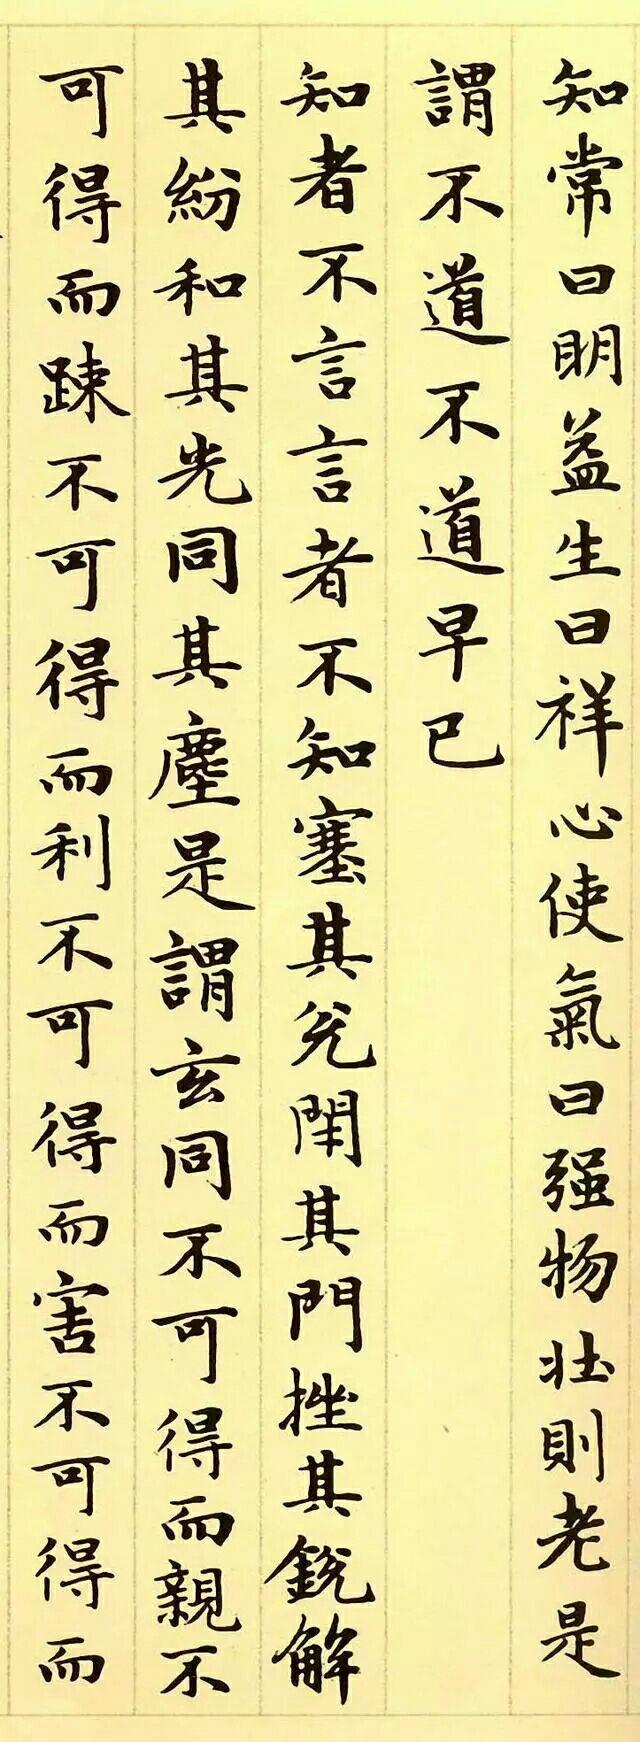 知常曰明益生曰祥心使氣曰强物壮則老是
謂不道不道早已
知者不言言者不知塞其兊閇其門挫其銳解
其紛和其光同其塵是謂玄同不可得而親不
可得而踈不可得而利不可得而害不可得而